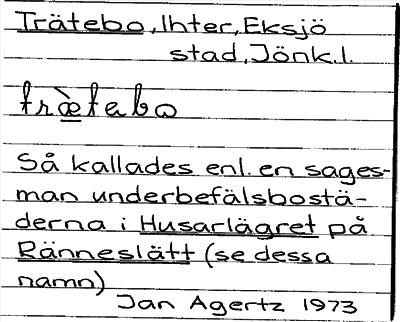 Trätebo, Ihter, Eksjö
stad, Jönk.l.
træ̀tebo
Så kallades enl. en sages-
man underbefälsbostä-
derna i Husarlägret på
Ränneslätt (se dessa
namn)
Jan Agertz 1973